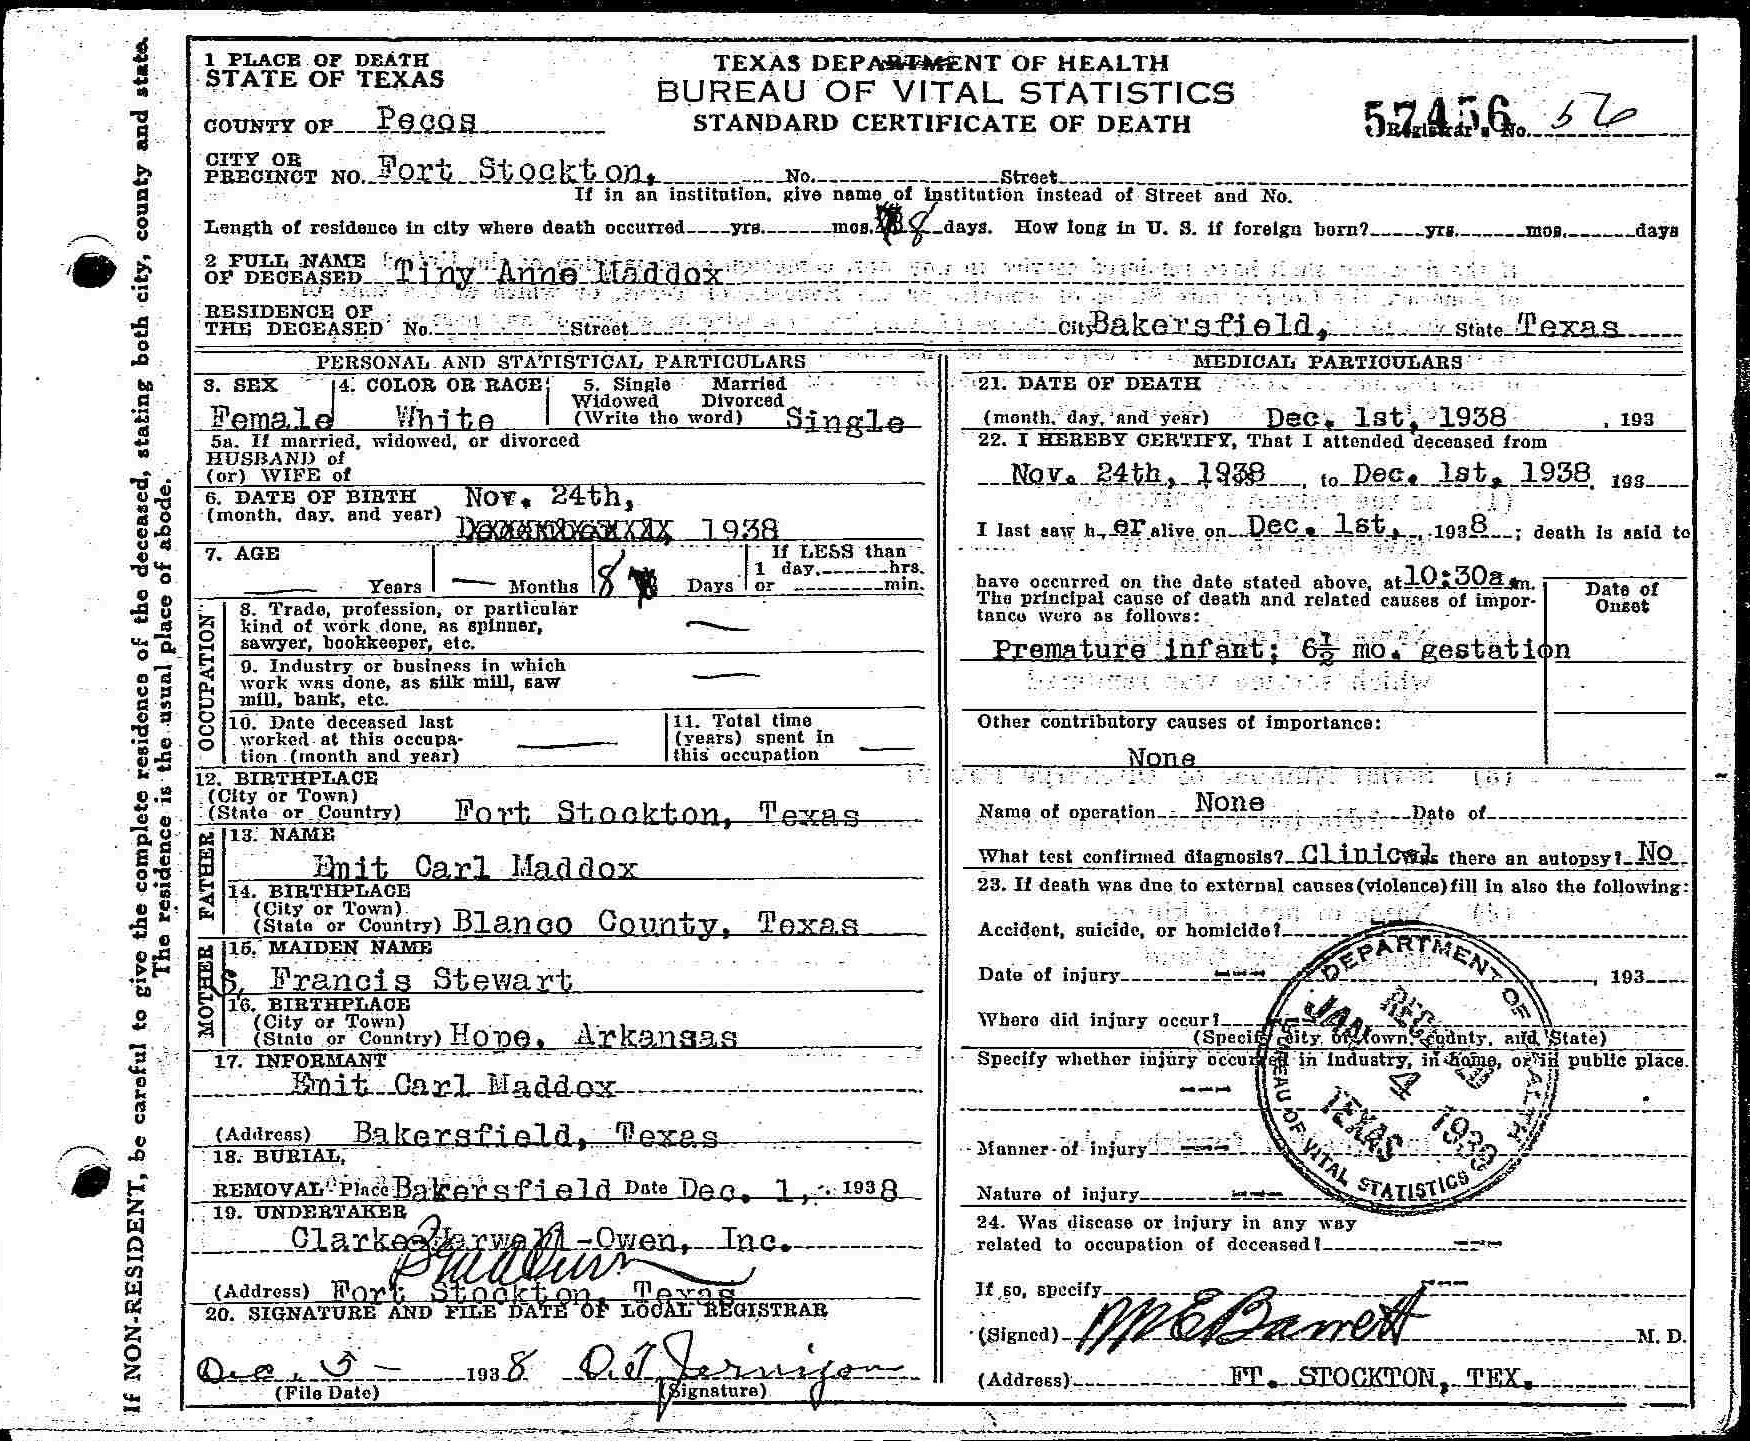 If NON-RESIDENT, be careful to give the complete residence of the deceased, stating both city, county and state.
The residence is the usual place of abode.
1 PLACE OF DEATH
STATE OF TEXAS
COUNTY OF Pecos
TEXAS DEPARTMENT OF HEALTH
BUREAU OF VITAL STATISTICS
STANDARD CERTIFICATE OF DEATH
57456
Registrar's No. 56
CITY OR
PRECINCT NO. Fort Stockton, No. Street
If in an institution, give name of institution instead of Street and No.
Length of residence in city where death occurred yrs. mos. 8 days. How long in U. S. if foreign born? yrs. mos. days
2 FULL NAME
OF DECEASED Tiny Anne Maddox
RESIDENCE OF
THE DECEASED No. Street City Bakersfield, State Texas
PERSONAL AND STATISTICAL PARTICULARS
3. SEX 4. COLOR OR RACE 5. Single Married
Widowed Divorced
Female White (Write the word) Single
5a. If married, widowed, or divorced
HUSBAND of
(or) WIFE of
6. DATE OF BIRTH Nov. 24th,
(month, day, and year) 1938
7. AGE If LESS than
1 day, hrs.
Years Months 8 Days or min.
OCCUPATION
8. Trade, profession, or particular
kind of work done, as spinner,
sawyer, bookkeeper, etc.
9. Industry or business in which
work was done, as silk mill, saw
mill, bank, etc.
10. Date deceased last
worked at this occupa-
tion (month and year)
11. Total time
(years) spent in
this occupation
12. BIRTHPLACE
(City or Town)
(State or Country) Fort Stockton, Texas
FATHER
13. NAME
Emit Carl Maddox
14. BIRTHPLACE
(City or Town)
(State or Country) Blanco County, Texas
MOTHER
15. MAIDEN NAME
S, Francis Stewart
16. BIRTHPLACE
(City or Town)
(State or Country) Hope, Arkansas
17. INFORMANT
Emit Carl Maddox
(Address) Bakersfield, Texas
18. BURIAL,
REMOVAL Place Bakersfield Date Dec. 1, 1938
19. UNDERTAKER
Clarke-Harwell-Owen, Inc.
(Address) Fort Stockton, Texas
20. SIGNATURE AND FILE DATE OF LOCAL REGISTRAR
Dec. 5 - 1938 O.T. Jernigan
(File Date) (Signature)
MEDICAL PARTICULARS
21. DATE OF DEATH
(month, day, and year) Dec. 1st, 1938, 193
22. I HEREBY CERTIFY, That I attended deceased from
Nov. 24th, 1938, to Dec. 1st, 1938, 193
I last saw h er alive on Dec. 1st, 1938; death is said to
have occurred on the date stated above, at 10:30a m.
The principal cause of death and related causes of impor-
tance were as follows:
Date of
Onset
Premature infant; 6½ mo. gestation
Other contributory causes of importance:
None
Name of operation None Date of
What test confirmed diagnosis? Clinical Was there an autopsy? No
23. If death was due to external causes (violence) fill in also the following:
Accident, suicide, or homicide?
Date of injury ---, 193
Where did injury occur?
(Specify city or town, county, and State)
Specify whether injury occurred in industry, in home, or in public place.
---
Manner of injury ---
Nature of injury ---
24. Was disease or injury in any way
related to occupation of deceased? ---
If so, specify ---
(Signed) M E Barrett M. D.
(Address) FT. STOCKTON, TEX.
DEPARTMENT OF HEALTH
BUREAU OF VITAL STATISTICS
RECEIVED
JAN 4 1939
TEXAS